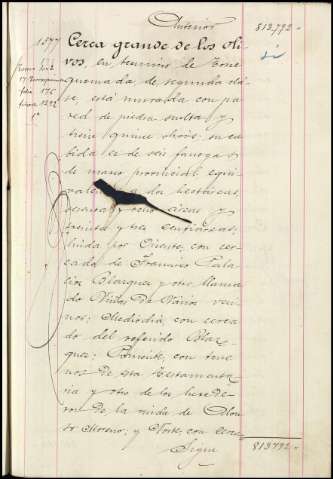 Anterior 813,792 -
1877
Cerca grande de los oli-
vos, en termino de Torre-
quemada, de segunda cla-
se, está murada con pa-
red de piedra suelta y
tiene quince olivos; su ca-
bida es de seis fanegas
de marco provincial, equi-
valentes a dos hectareas,
y
treinta y tres centiareas;
linda por Oriente, con cer-
cado de Francisco Pala-
cin Blazquez y otro llamado
de Varios veci-
nos; Mediodia, con cerca-
do del referido Blaz-
quez; Poniente, con terre-
nos de esta Testamenta-
ria y otro de los herede-
ros de la viuda de Alon-
so Moreno; y Norte, con cerca-
Sigue 813792 -